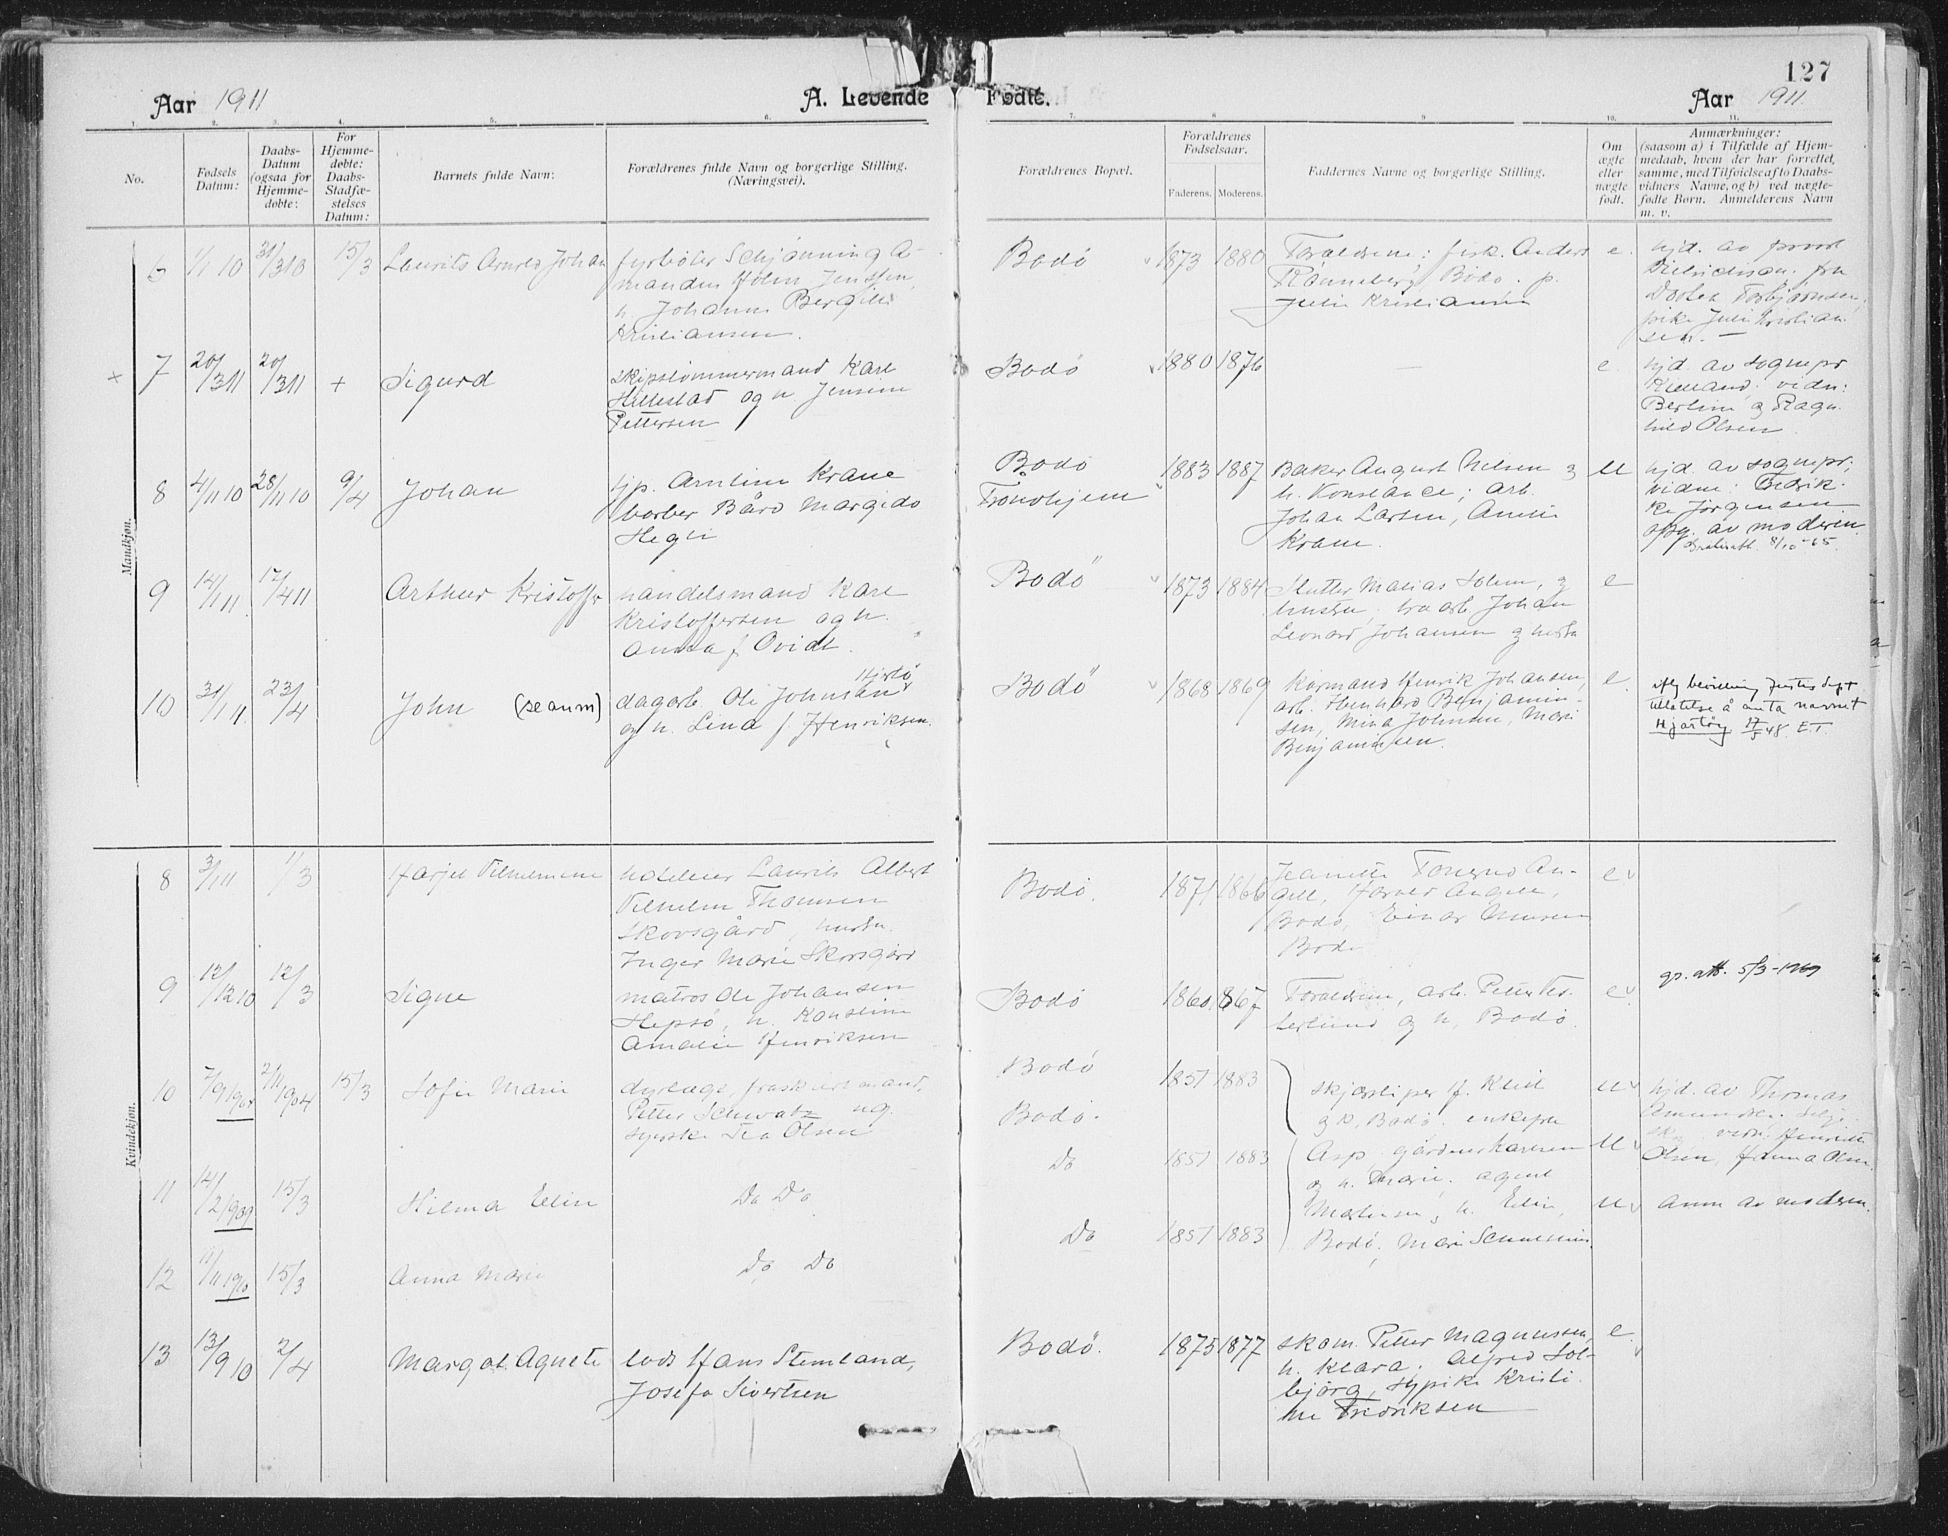 127
Aar 1911
A. Levende Fødte.
Aar 1911.
1. 2. 3. 4. 5. 6. 7. 8. 9. 10. 11.
No.
Fødsels Datum:
Daabs-Datum (ogsaa for Hjemme-døbte:
For Hjemme-døbte: Daabs-Stadfæ-stelses Datum:
Barnets fulde Navn:
Forældrenes fulde Navn og borgerlige Stilling.
(Næringsvei).
Forældrenes Bopæl.
Forældrenes Fødselsaar.
Faderens. Moderens.
Faddernes Navne og borgerlige Stilling.
Om ægte eller nægte født.
Anmærkninger:
(saasom a) i Tilfælde af Hjem-
medaab, hvem der har forrettet
samme, med Tilføielse af to Daabs-
vidners Navne, og b) ved nægte-
fødte Børn. Anmelderens Navn
m. v.
Mandkjøn.
6 1/1 10 31/3 10 15/3 Laurits Arnred Johan
fyrbøter Schjønning A-
manden Holm Jenssen,
h. Johanna Bergitte
Kristiansen.
Bodø 1873 1880
Forældrene; fisk. Anders
Rønneberg, Bodø. p.
Julie Kristiansen
e.
hjd. av provst
pike Juli Kristian
sen. —
+ 7 20/3 11 20/3 11 + Sigurd
skipstømmermand Karl
Hillestad og h Jensine
Pettersen
Bodø 1880 1876 — e.
hjd. av sognepr
Kielland. vidn:
Berline og Ragn
hild Olsen
8 4/11 10 28/11 10 9/4 Johan
tjp. Arntine Krane
barber Bård Margido
Hegli
Bodø
Trondhjem
1883 1887
Baker August Nilsen og
h. Konstance; arb.
Johan Larsen, Amelie
Krane.
U
hjd. av sognepr;
vidne: Fredrik-
ke Jørgensen
opg. av moderen
8/10-65.
9 14/1 11 17/4 11 Arthur Kristoffer
handelsmand Karl
Kristoffersen og h.
Anna f. Ovidt.
Bodø 1873 1884
Slutter Matias Solem, og
hustru. bra arb Johan
Leonard Johansen og hustru
e
10 31/1 11 23/4 John (se anm)
Hjertø
dagarb. Ole Johnsen
og h. Lina f. Henriksen.
Bodø 1868 1869
Kormand Henrik Johansen,
arb. Bernhard Benjamin-
sen, Mina Johnsen, Marie
Benjaminsen.
e.
iflg bevilling Justis dept
tillatelse å anta navnet
Hjartøy 17/5 48. E.T.
Kvindekjøn.
8 3/1 11 1/3 Harjet Vilhelmine
hoteleier Laurits Albert
Vilhelm Thomsen
Skovsgård, hustru
Inger Marie Skovsgård
Bodø. 1871 1866
Jeanette Tønerud An-
gell, Harald Angell,
Bodø, Einar Munsen
Bodø
e
9 12/12 10 12/3 Signe
matros Ole Johansen
Hepsø, h. Konstine
Amalie Henriksen
Bodø 1860 1867
Forældrene, arb. Petter Ves-
terlund og h, Bodø.
e
gp. att. 5/3-1969
10 7/9 1904 2/11 1904 15/3 Sofie Marie
dyrlæge, fraskilt mand,
Petter Schwabz ug.
syerske Lea Olsen
Bodø
Bodø.
1851 1883
skjærsliper f. Klist
og h, Bodø. enkefru
U
hjd. av Thomas
Amundsen.
vidn: Henriette
Olsen, Hanna Olsen
11 14/2 1909 15/3 Hilma Elin
Do Do
Do 1851 1883
Asp. gårdmester Karlsen
og h. Marie. agent
Mortensen, h. Elin,
U
anm av moderen.
12 11/11 1910 15/3 Anna Marie
Do Do
Do 1851 1883
Bodø, Marie
U
13 13/9 10 2/4 Margot Agnete
lods Hans Stemland,
Josefa Sivertsen
Bodø. 1875 1877
skom. Petter Magnussen,
h. Klara. Alfred Sol-
bjørg, sypike Kristi-
ne Fredriksen
e